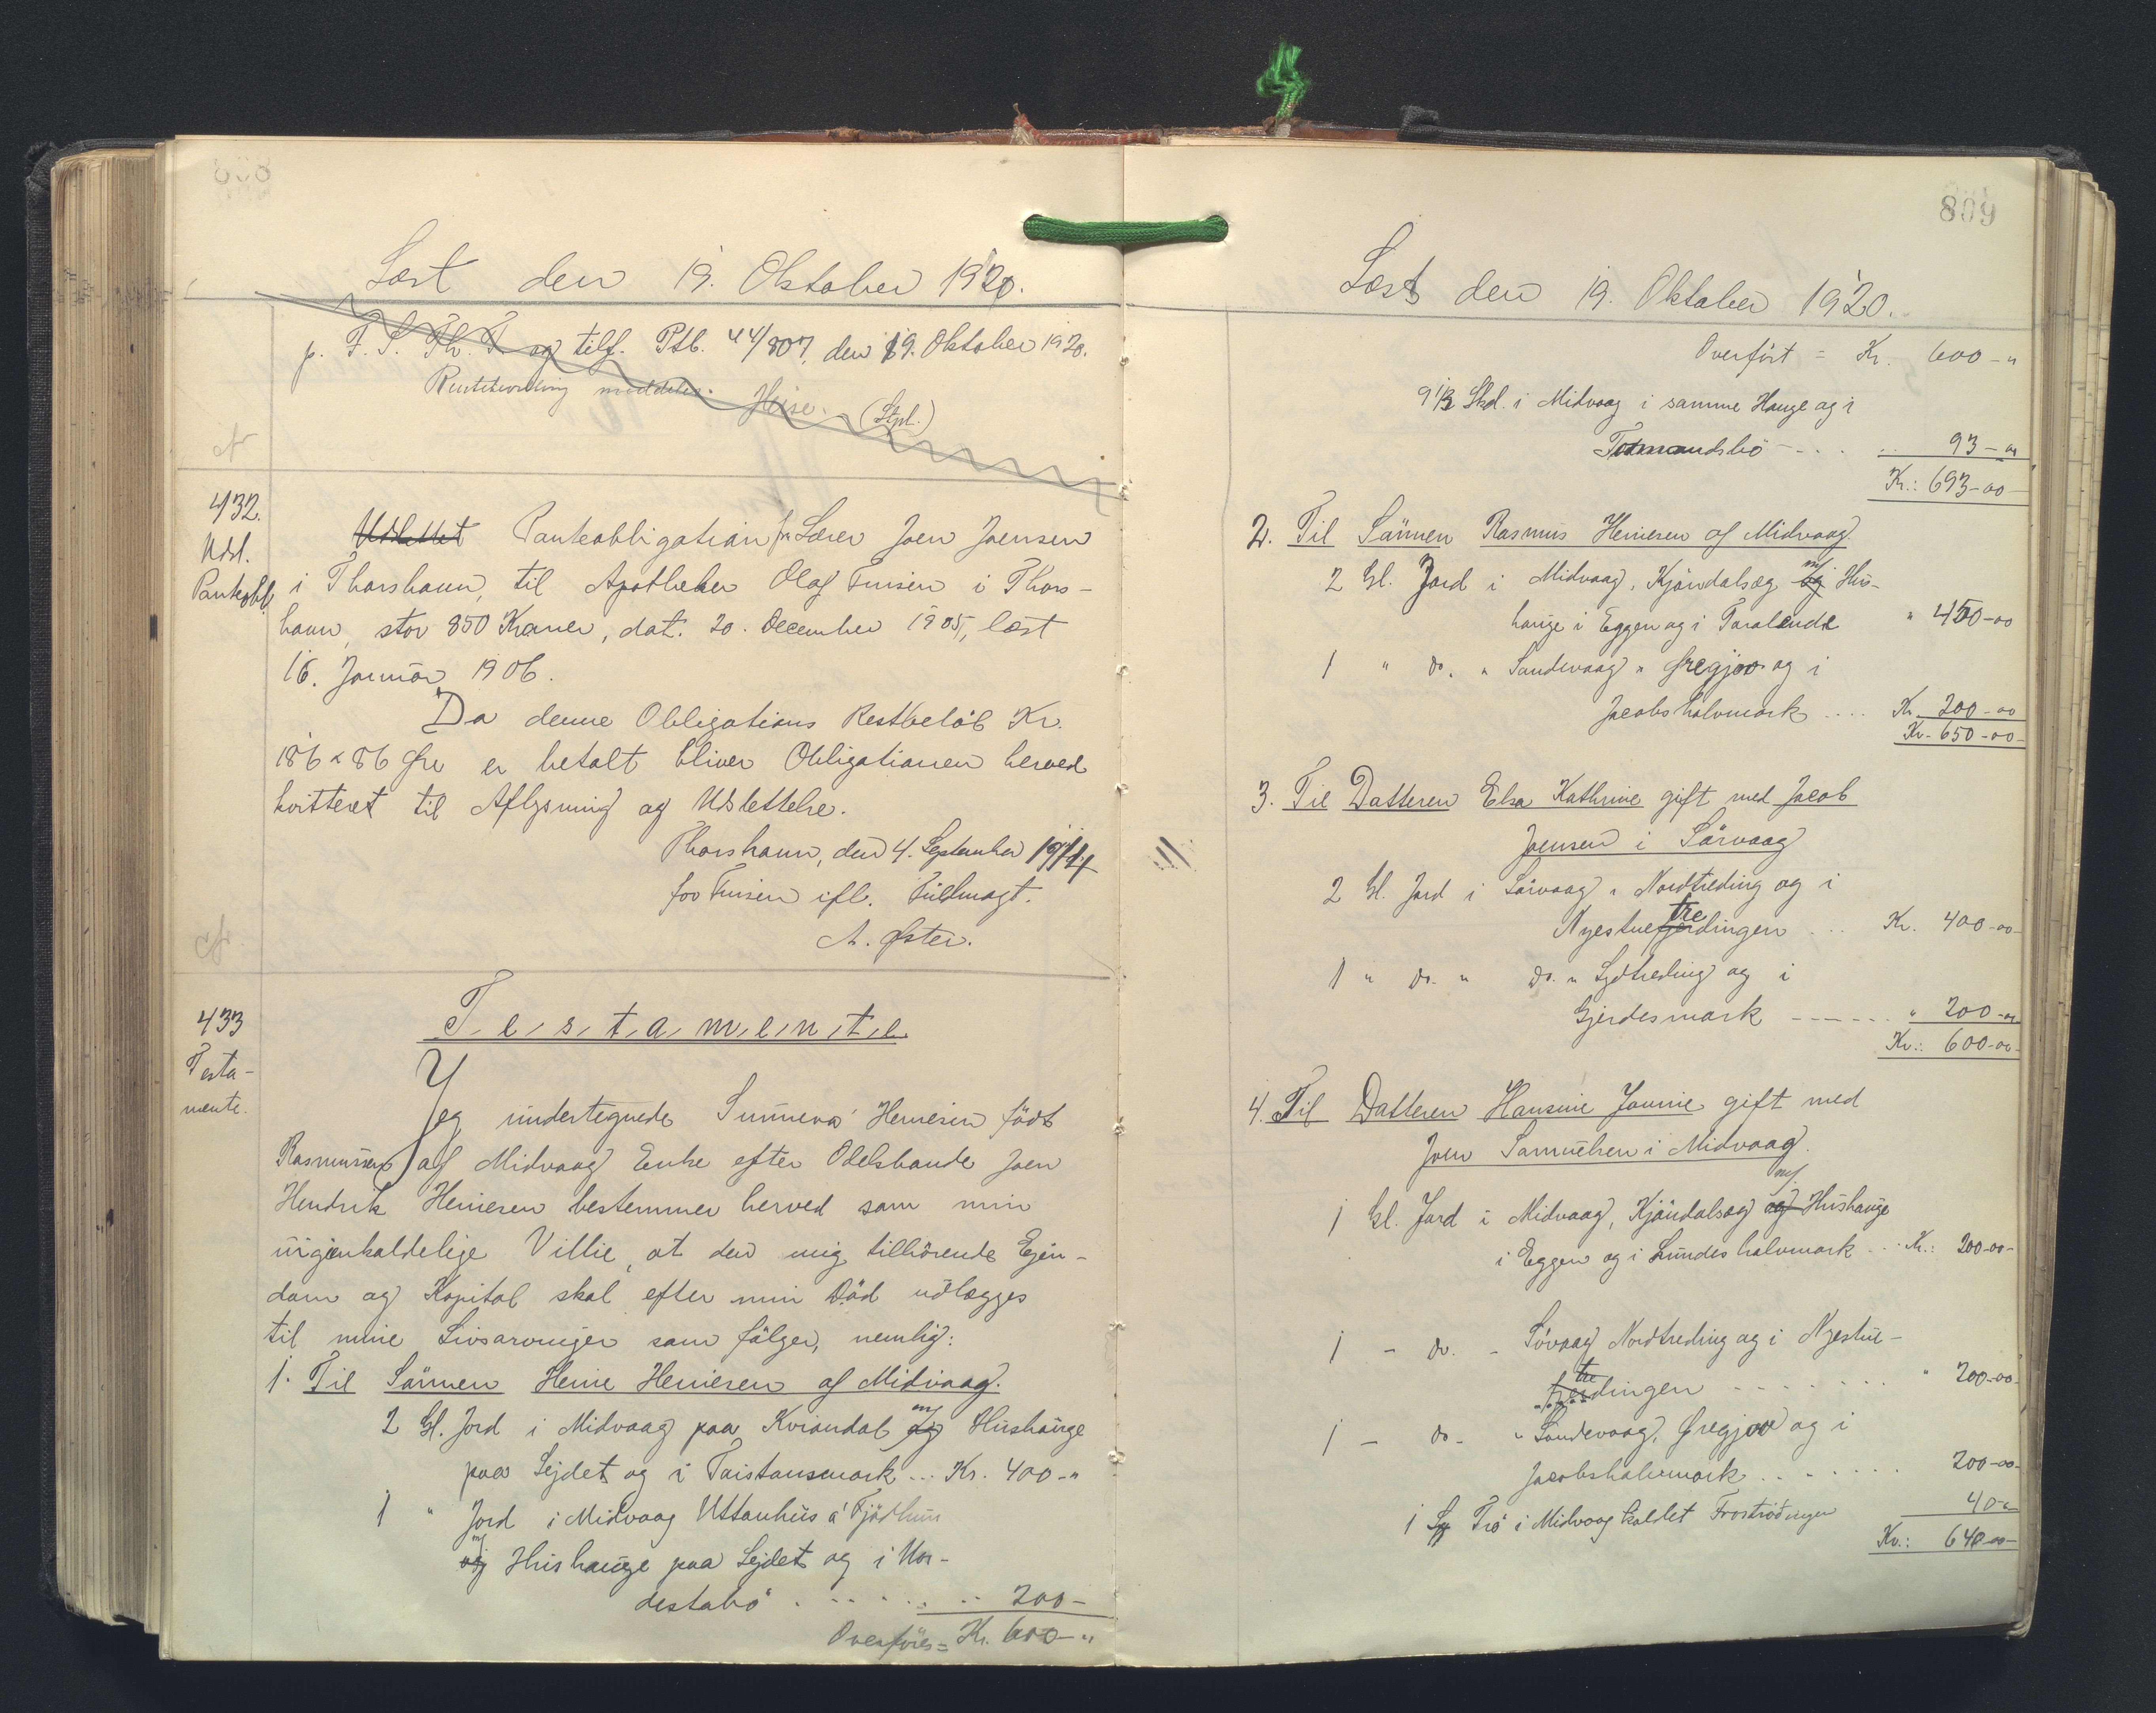 808
Læst den 19. Oktober 1920.
p. F. S. Th. T og tilf. Ptb. 44/807, den 19. Oktober 1920.
meddeles. Heise. (Stpl.)
432.
Udsl.
Panteobl.
Udslettet Panteobligation fra Lærer Joen Joensen
i Thorshavn, til Apotheker Olaf Finsen i Thors-
havn, stor 850 Kroner, dat. 20. December 1905, læst
16. Januar 1906.
Da denne Obligations Restbeløb Kr.
186 x 86 Øre er betalt bliver Obligationen herved
kvitteret til Aflysning og Udslettelse.
Thorshavn, den 4. September 1914
for Finsen ifl. Fuldmagt.
A. Øster.
433
Testa-
mente.
Testamente
Jeg undertegnede Sunneva Heinesen født
Rasmussen af Midvaag Enke efter Odelsbonde Joen
Hendrik Heinesen bestemmer herved som min
uigjenkaldelige Villie, at den mig tilhørende Ejen-
dom og Kapital skal efter min Død udlægges
til mine Livsarvinger som følger, nemlig:
1. Til Sönnen Heine Heinesen af Midvaag.
2 Gl. Jord i Midvaag paa Kviandal og Hushauge
paa Lejdet og i Taistansmark... Kr. 400-"
1 " Jord i Midvaag Uttanhus á Fjødlum
og Hushauge paa Lejdet og i Nor-
destabø . . . . . . 200-
Overføres = Kr. 600-"
809
Læst den 19. Oktober 1920.
Overført = Kr. 600-"
9 1/3 Skd. i Midvaag i samme Hauge og i
Tormandsbø - . . . 93-00
Kr.: 693-00
2. Til Sönnen Rasmus Heinesen af Midvaag.
2 Gl. Jord i Midvaag, Kjóndalsog og Hus-
hauge i Eggen og i Taralende " 450-00
1 " do. " Sandevaag " Øregjov og i
Jacobshalvmark .... Kr. 200-00
Kr. 650-00
3. Til Datteren Elsa Kathrine gift med Jacob
Joensen i Sörvaag
2 Gl. Jord i Sörvaag " Nordtreding og i
Nyestuetredingen ... Kr. 400-00
1 " do. " do. " Sydtreding og i
Gjerdesmark ------ " 200-00
Kr.: 600-00
4. Til Datteren Hansine Jonnie gift med
Joen Samuelsen i Midvaag.
1 Gl. Jord i Midvaag, Kjóndalsog og Hushauge
i Eggen og i Lundes halvmark ... Kr.: 200-00
1 - do. - Sörvaag Nordtreding og i Nyestue-
tredingen - - - - - - " 200-00
1 - do - " Sandevaag, Øregjov og i
Jacobshalvmark . . . . . . 200-00
1 Trö i Midvaag kaldet 40-"
Kr.: 640-00